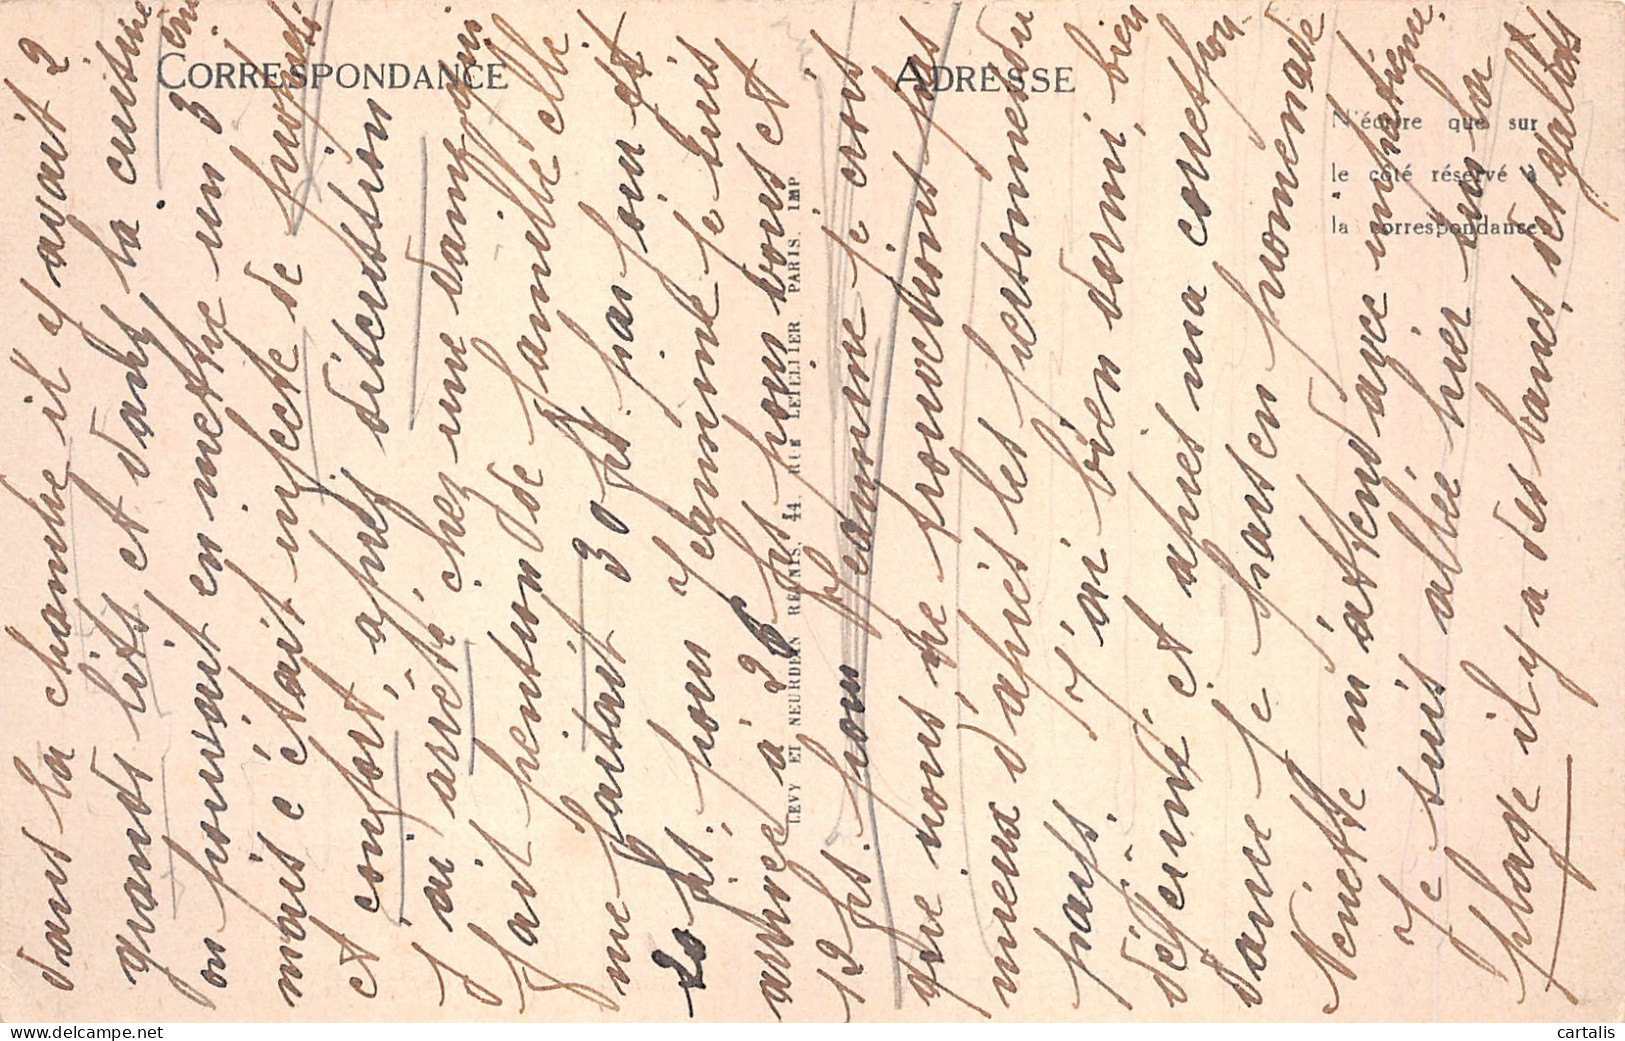 CORRESPONDANCE
ADRESSE
N'écrire que sur
le côté réservé à
la correspondance
LEVY ET NEURDEIN RÉUNIS, 44, RUE LETELLIER, PARIS. IMP
dans la chambre il y avait 2
grands lits et dans la cuisine
on pouvait en mettre un 3ème
mais c'était infecte de propreté
et confort, après discussion
j'ai arrêté chez une dame qui
fait pension de famille elle
me faisait 30 frs par jour et
20 frs pour Jeannine je suis
arrivée à 26 frs pour vous et
12 frs pour Jeannine je crois
que nous ne trouverions pas
mieux d'après les personnes du
pays. J'ai bien dormi, bien
déjeuné et après ma correspon-
dance je pars en promenade
Nénette m'attend avec impatience.
Je suis allée hier sur la
plage il y a des bancs, des galets